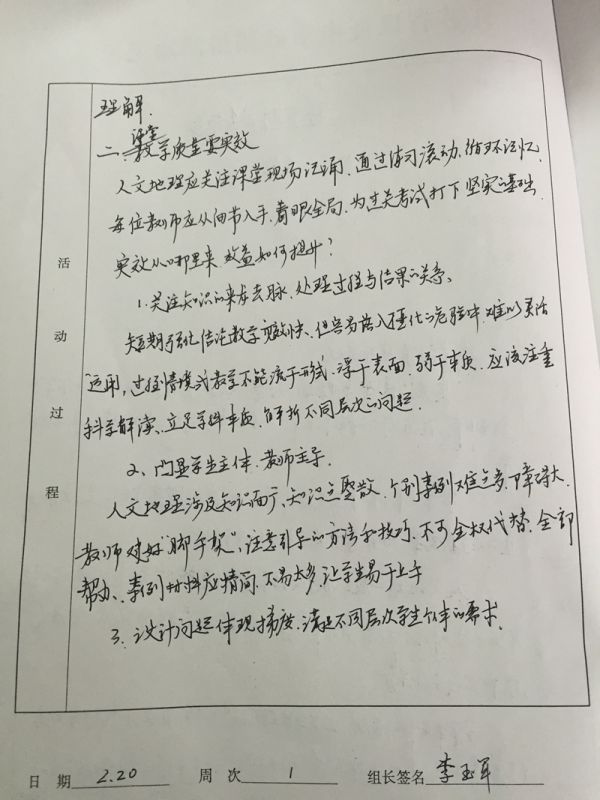 理解.
二、课堂教学质量要实效
人文地理应关注课堂现场记诵，通过练习滚动、循环记忆，
每位教师应从细节入手，着眼全局，为过关考试打下坚实的基础.
实效从哪里来，效益如何提升？
1.关注知识的来龙去脉、处理过程与结果的关系、
短期强化结论教学变效快、但容易落入僵化的危险中，难以灵活
运用，过程情境式教学不能流于形式，浮于表面，弱于本质，应该注重
科学解读、立足学科本质，解析不同层次的问题.
2、凸显学生主体，教师主导.
人文地理涉及知识面广、知识点繁散，个别案例难点多，障碍大，
教师建好“脚手架”，注意引导的方法和技巧，不可全权代替，全部
帮办、案例材料应精简，不易太多，让学生易于上手
3、设计问题体现梯度，满足不同层次学生个体的要求.
活动过程
日 期 2.20 周 次 1 组长签名 李玉军